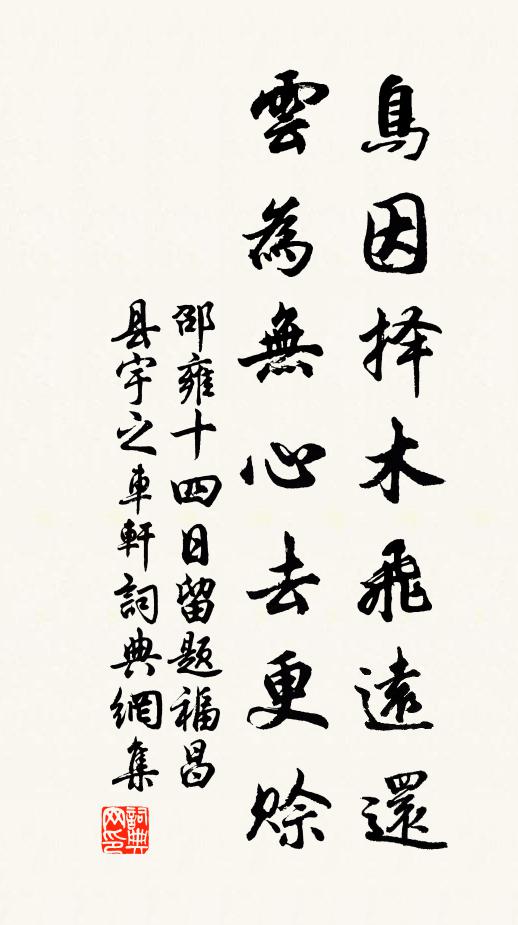 鳥因择木飛遠還
雲為無心去更赊
邵雍十四日留题福昌
县宇之車軒詞典網集
詞典
网印